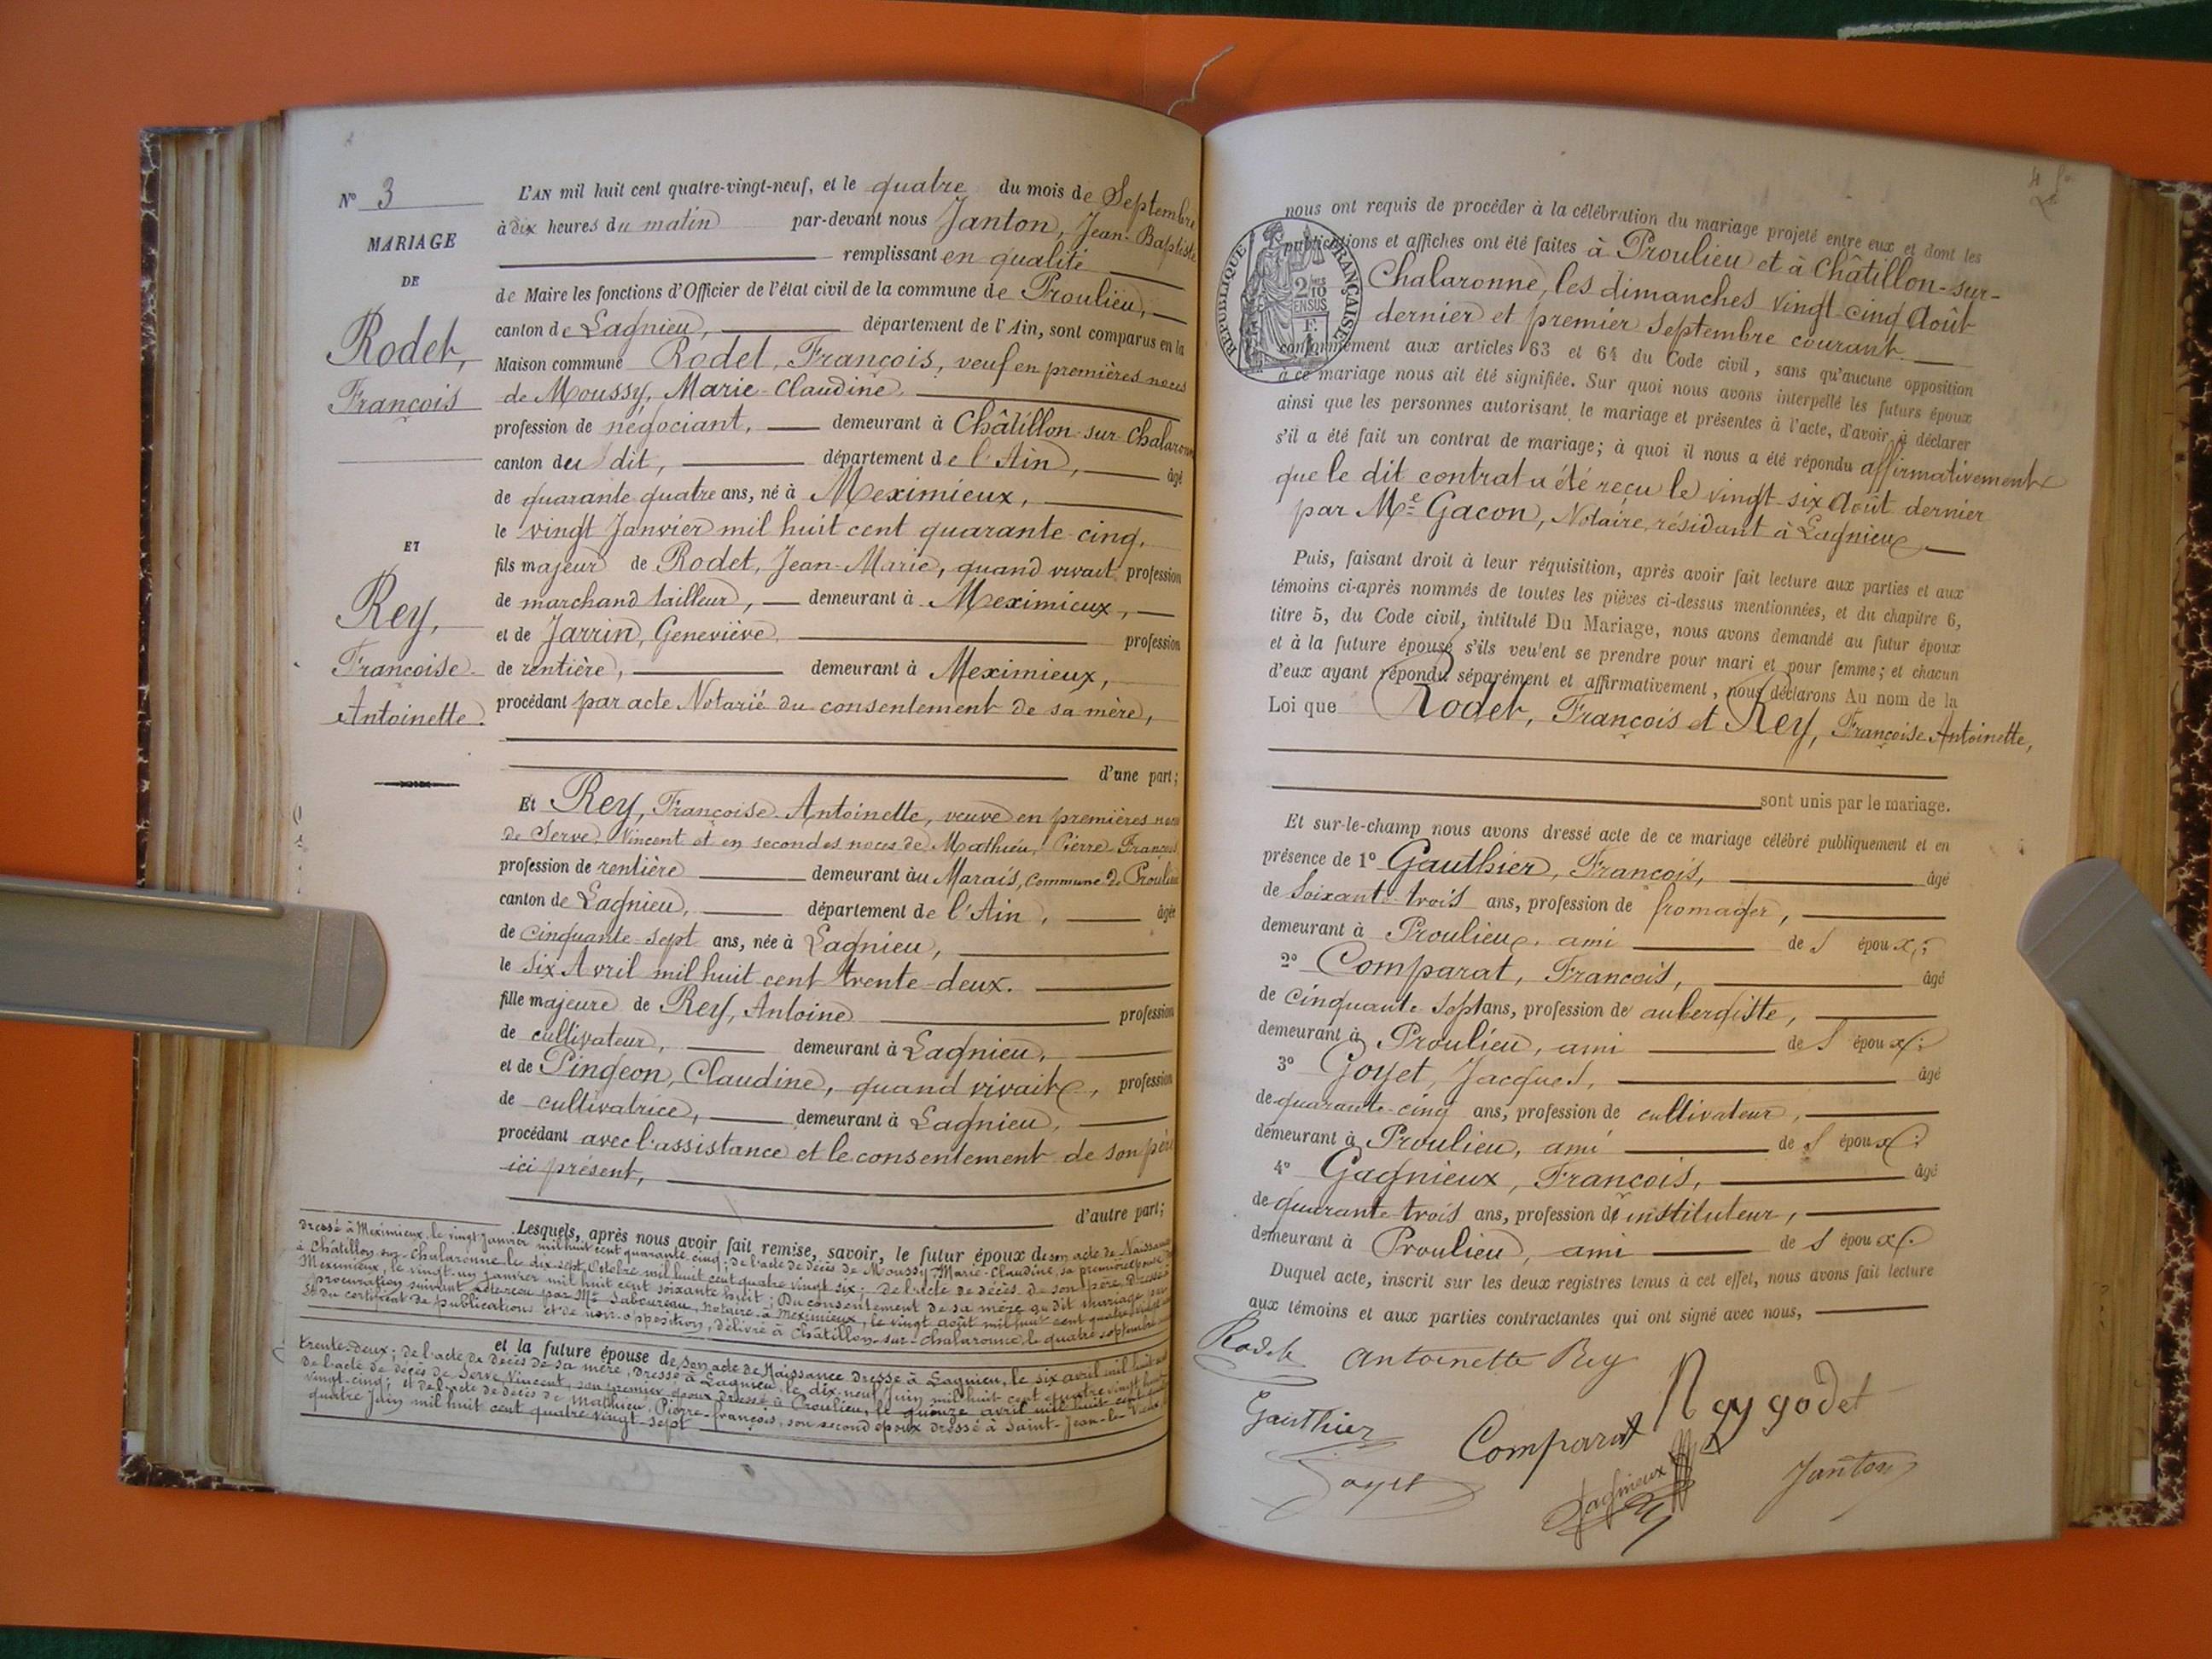 N° 3
MARIAGE
DE
Rodet,
François
ET
Rey,
Françoise-
Antoinette.
L'AN mil huit cent quatre-vingt-neuf, et le quatre du mois de Septembre
à dix heures du matin par-devant nous Janton, Jean-Baptiste
remplissant en qualité
de Maire les fonctions d'Officier de l'état civil de la commune de Proulieu,
canton de Lagnieu, département de l'Ain, sont comparus en la
Maison commune Rodet, François, veuf en premières noces
de Moussy, Marie-Claudine,
profession de négociant, demeurant à Châtillon-sur-Chalaronne
canton du dit, département de l'Ain, âgé
de quarante quatre ans, né à Meximieux,
le vingt Janvier mil huit cent quarante-cinq,
fils majeur de Rodet, Jean-Marie, quand vivait profession
de marchand tailleur, demeurant à Meximieux,
et de Jarrin, Geneviève, profession
de rentière, demeurant à Meximieux,
procédant par acte Notarié du consentement de sa mère,
d'une part;
Et Rey, Françoise-Antoinette, veuve en premières noces
de Serve, Vincent et en secondes noces de Mathieu, Pierre-François
profession de rentière demeurant au Marais, Commune de Proulieu
canton de Lagnieu, département de l'Ain, âgée
de cinquante-sept ans, née à Lagnieu,
le six Avril mil huit cent trente-deux.
fille majeure de Rey, Antoine profession
de cultivateur, demeurant à Lagnieu,
et de Pingeon, Claudine, quand vivait, profession
de cultivatrice, demeurant à Lagnieu,
procédant avec l'assistance et le consentement de son père
ici présent,
d'autre part;
Lesquels, après nous avoir fait remise, savoir, le futur époux de son acte de Naissance
dressé à Meximieux, le vingt Janvier mil huit cent quarante-cinq; de l'acte de décès de Moussy, Marie-Claudine, sa première épouse
à Châtillon-sur-Chalaronne le dix-sept Octobre mil huit cent quatre vingt six; de l'acte de décès de son père, dressé à
Meximieux, le vingt-un Janvier mil huit cent soixante huit; Du consentement de sa mère au dit mariage, par
procuration suivant acte reçu par Me Sabcureau, notaire à Meximieux, le vingt août mil huit cent quatre vingt
et du certificat de publications et de non-opposition, délivré à Châtillon-sur-Chalaronne, le quatre septembre
et la future épouse de son acte de Naissance dressé à Lagnieu, le six avril mil huit cent
trente-deux; de l'acte de décès de sa mère, dressé à Lagnieu, le dix-neuf Juin mil huit cent quatre vingt huit
de l'acte de décès de Serve, Vincent, son premier époux dressé à Proulieu, le quinze avril mil huit cent quatre
vingt-cinq; et de l'acte de décès de Mathieu, Pierre-françois, son second époux dressé à Saint-Jean-le-Vieux,
quatre Juin mil huit cent quatre vingt-sept
nous ont requis de procéder à la célébration du mariage projeté entre eux et dont les
publications et affiches ont été faites à Proulieu et à Châtillon-sur-
Chalaronne, les dimanches vingt-cinq Août
dernier et premier Septembre courant
conformément aux articles 63 et 64 du Code civil, sans qu'aucune opposition
à ce mariage nous ait été signifiée. Sur quoi nous avons interpellé les futurs époux
ainsi que les personnes autorisant le mariage et présentes à l'acte, d'avoir à déclarer
s'il a été fait un contrat de mariage; à quoi il nous a été répondu affirmativement
que le dit contrat a été reçu le vingt-six Août dernier
par Me Gacon, Notaire, résidant à Lagnieu
Puis, faisant droit à leur réquisition, après avoir fait lecture aux parties et aux
témoins ci-après nommés de toutes les pièces ci-dessus mentionnées, et du chapitre 6,
titre 5, du Code civil, intitulé Du Mariage, nous avons demandé au futur époux
et à la future épouse s'ils veulent se prendre pour mari et pour femme; et chacun
d'eux ayant répondu séparément et affirmativement, nous déclarons Au nom de la
Loi que Rodet, François et Rey, Françoise Antoinette,
sont unis par le mariage.
Et sur-le-champ nous avons dressé acte de ce mariage célébré publiquement et en
présence de 1° Gauthier, François, âgé
de soixante-trois ans, profession de fromager,
demeurant à Proulieu, ami des époux;
2° Comparat, François, âgé
de cinquante-sept ans, profession de aubergiste,
demeurant à Proulieu, ami des époux;
3° Goyet, Jacques, âgé
de quarante-cinq ans, profession de cultivateur,
demeurant à Proulieu, ami des époux;
4° Gagnieux, François, âgé
de quarante-trois ans, profession d'instituteur,
demeurant à Proulieu, ami des époux.
Duquel acte, inscrit sur les deux registres tenus à cet effet, nous avons fait lecture
aux témoins et aux parties contractantes qui ont signé avec nous,
Rodet Antoinette Rey
Gauthier Comparat Rey godet
Goyet Gagnieux Janton
RÉPUBLIQUE FRANÇAISE
2/10 EN SUS